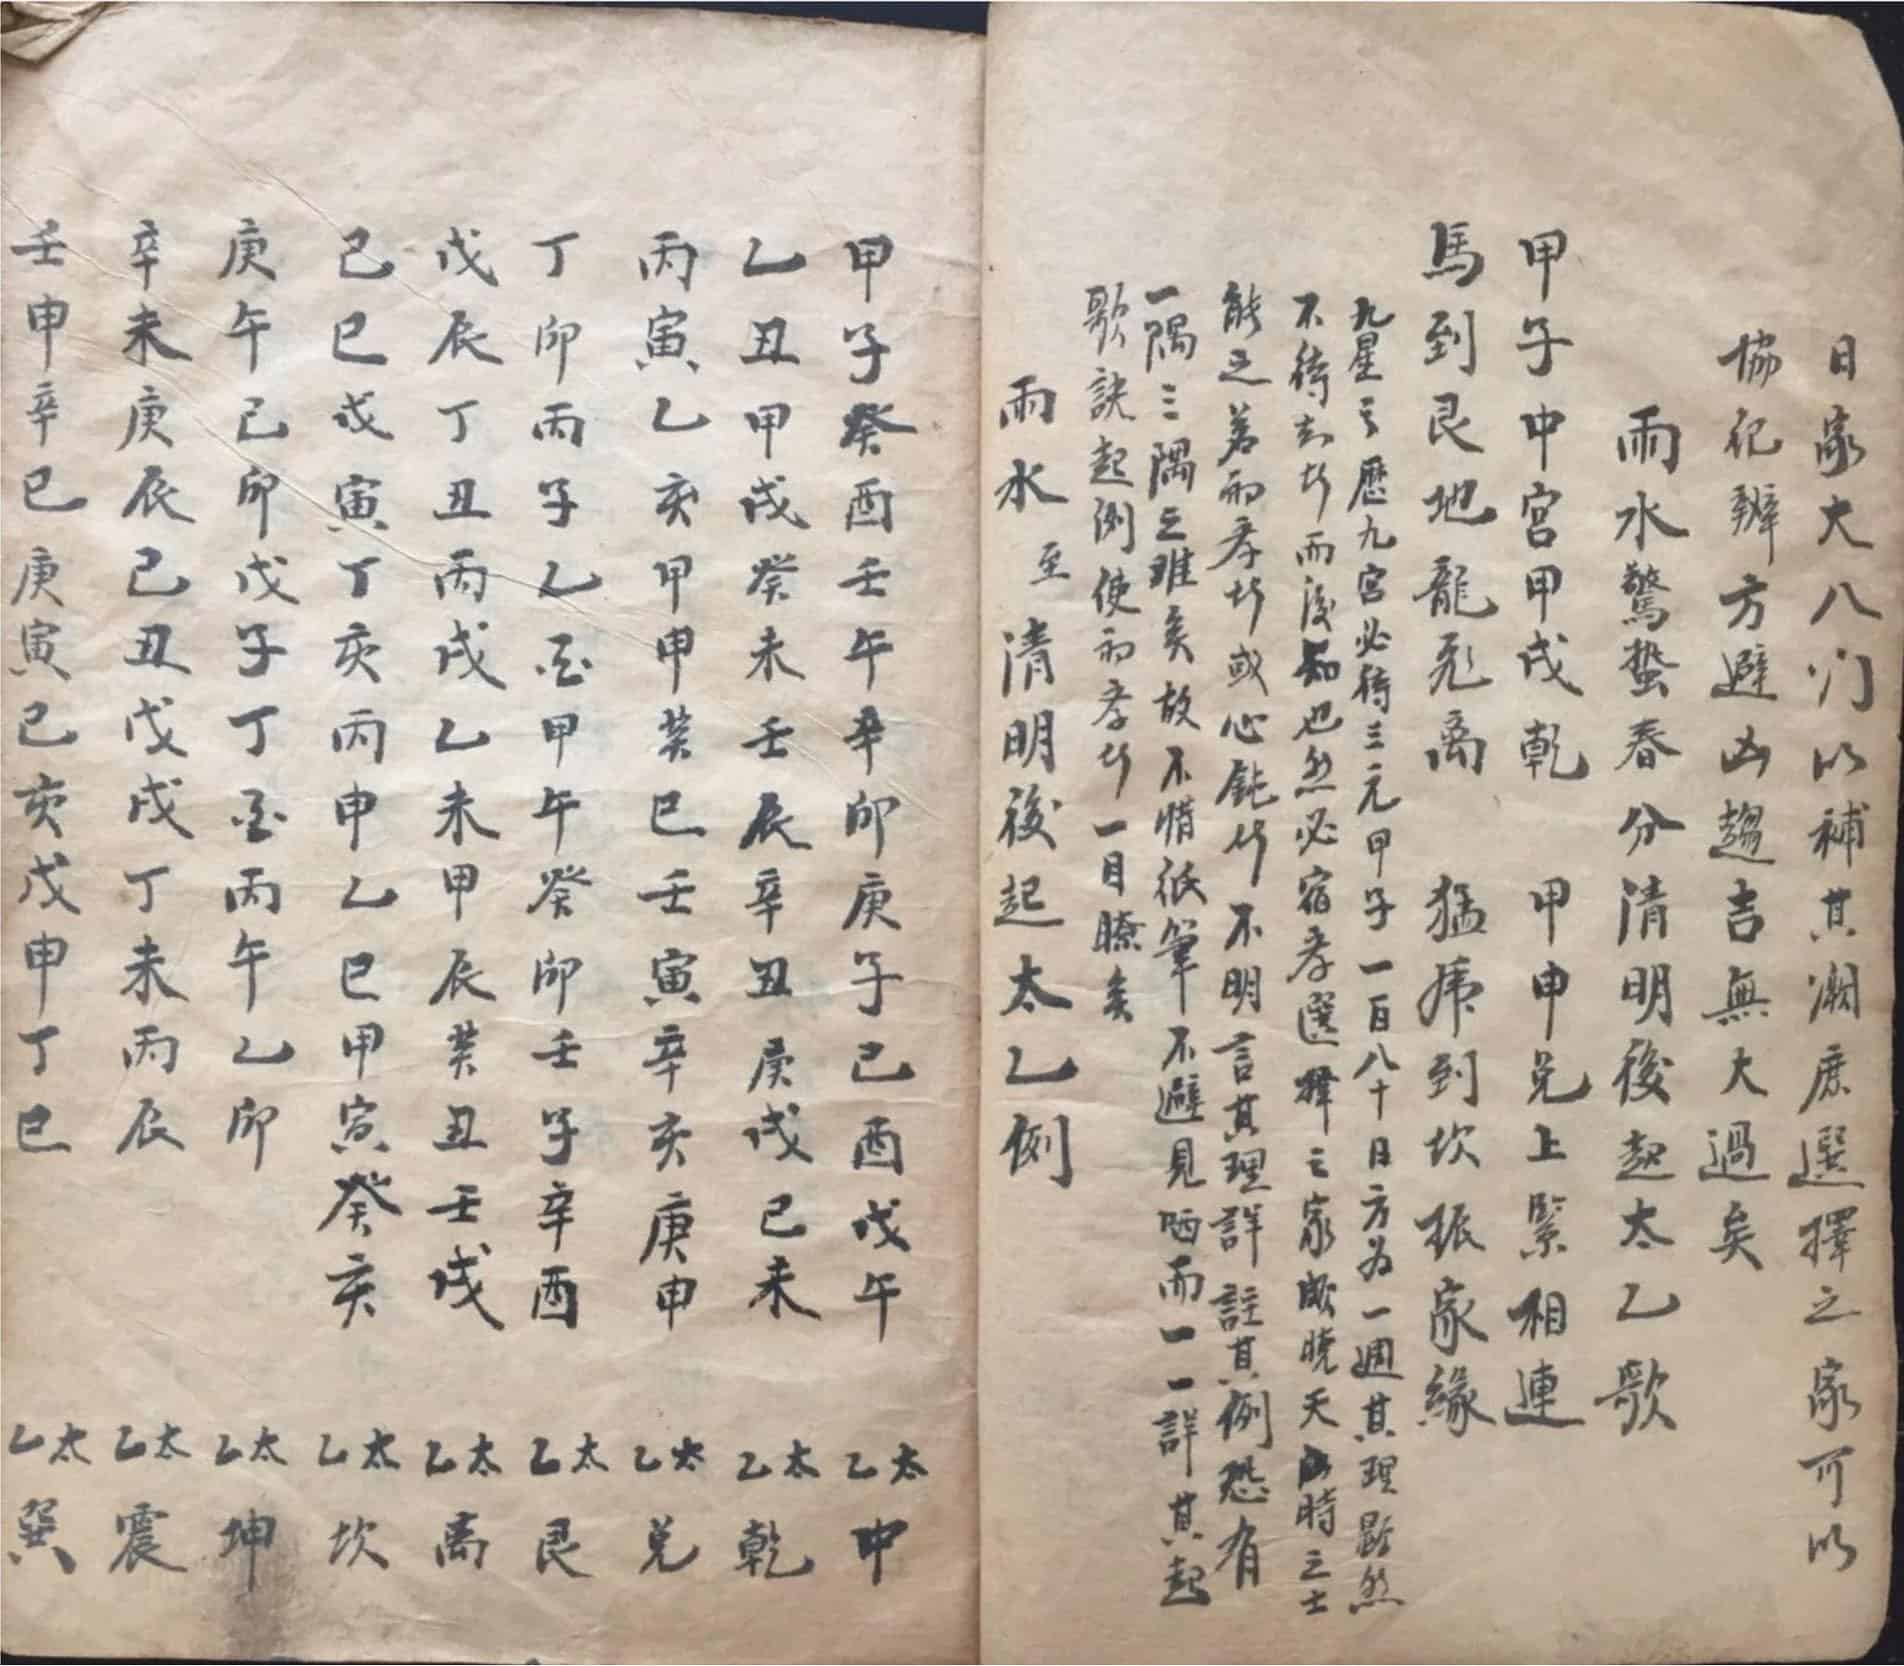 日家大八门以補其漏庶選擇之家可以
協紀辦方避凶趨吉無大過矣
雨水驚蛰春分清明後起太乙歌
甲子中宮甲戌乾 甲申兑上緊相連
馬到艮地龍飛离 猛虎到坎振家緣
九星之歷九宮必待三元甲子一百八十日方为一週其理顯然
不待而後知也然必宿孝選擇之家晓天時之士
能之若初孝或心鈍不明言其理詳註其例恐有
一隅三隅之难矣故不惜纸筆不避見哂而一一詳其起
歌訣起例使初孝一目瞭矣
雨水至清明後起太乙例
甲子癸酉壬午辛卯庚子己酉戊午 太乙中
乙丑甲戌癸未壬辰辛丑庚戌己未 太乙乾
丙寅乙亥甲申癸巳壬寅辛亥庚申 太乙兑
丁卯丙子乙酉甲午癸卯壬子辛酉 太乙艮
戊辰丁丑丙戌乙未甲辰癸丑壬戌 太乙离
己巳戊寅丁亥丙申乙巳甲寅癸亥 太乙坎
庚午己卯戊子丁酉丙午乙卯 太乙坤
辛未庚辰己丑戊戌丁未丙辰 太乙震
壬申辛巳庚寅己亥戊申丁巳 太乙巽